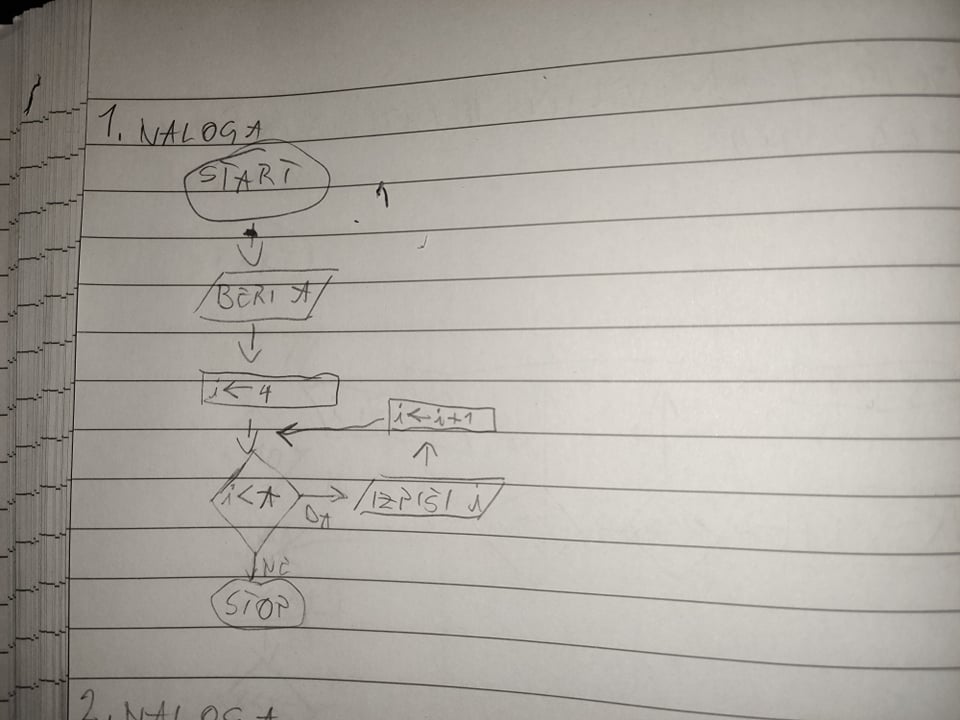 1. NALOGA
START
BERI A
i ← 4
i ← i+1
i < A
DA
IZPIŠI i
NE
STOP
2. NALOGA